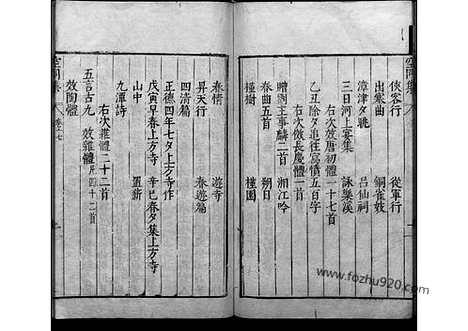 空同集
俠客行　從軍行
出塞曲　銅雀妓
漳津夕眺　吕仙祠
三日河上宴集　詠樂溪
右次效唐初體一十七首
乙丑除夕追往寫情五百字
右次倣長慶體一首
贈劉主事麟二首　湘江吟
春曲五首　朔日
種樹　種園
春情　遊寺
昇天行　春遊篇
四清篇
正德四年七夕上方寺作
戊寅早春上方寺　辛巳春夕集上方寺
山中　置薪
九潭詩
右次雜體二十二首
五言古九　效雜體凡四十二首
效陶體
空同集
www.fozhu920.com